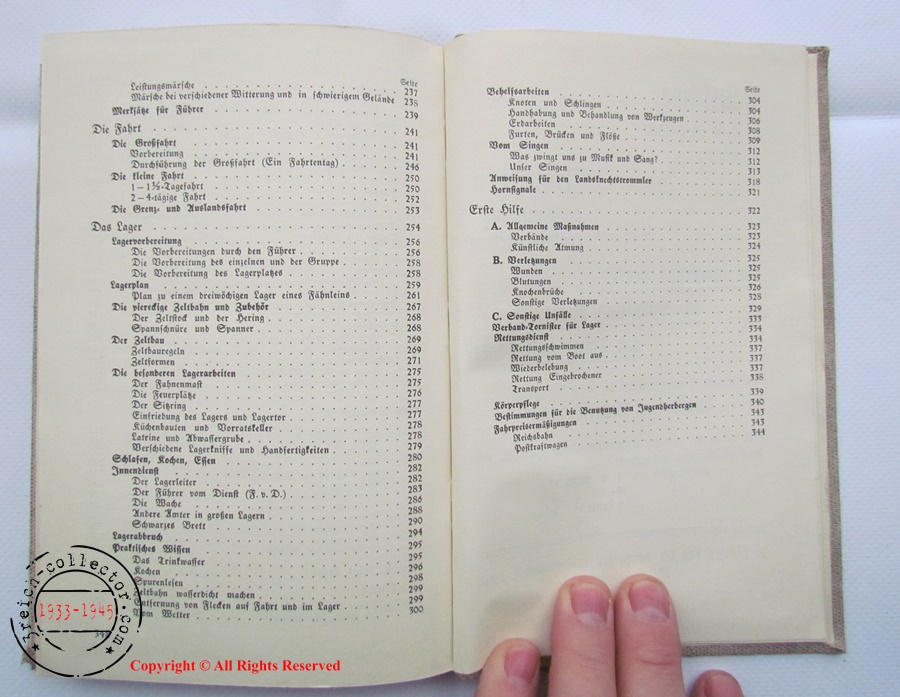 Seite
Leistungsmärsche 237
Märsche bei verschiedener Witterung und in schwierigem Gelände 238
Merksätze für Führer 239
Die Fahrt 241
Die Großfahrt 241
Vorbereitung 241
Durchführung der Großfahrt (Ein Fahrtentag) 246
Die kleine Fahrt 250
1–1½-Tagefahrt 250
2–4-tägige Fahrt 252
Die Grenz- und Auslandsfahrt 253
Das Lager 254
Lagervorbereitung 256
Die Vorbereitungen durch den Führer 256
Die Vorbereitung des einzelnen und der Gruppe 258
Die Vorbereitung des Lagerplatzes 258
Lagerplan 259
Plan zu einem dreiwöchigen Lager eines Fähnleins 261
Die viereckige Zeltbahn und Zubehör 267
Der Zeltstock und der Hering 268
Spannschnüre und Spanner 268
Der Zeltbau 269
Zeltbauregeln 269
Zeltformen 271
Die besonderen Lagerarbeiten 275
Der Fahnenmast 275
Die Feuerplätze 276
Der Sitzring 277
Einfriedung des Lagers und Lagertor 277
Küchenbauten und Vorratskeller 278
Latrine und Abwassergrube 278
Verschiedene Lagerkniffe und Handfertigkeiten 279
Schlafen, Kochen, Essen 280
Innendienst 282
Der Lagerleiter 282
Der Führer vom Dienst (F. v. D.) 283
Die Wache 286
Andere Ämter in großen Lagern 288
Schwarzes Brett 290
Lagerabbruch 294
Praktisches Wissen 295
Das Trinkwasser 295
Kochen 296
Spurenlesen 298
Zeltbahn wasserdicht machen 299
Entfernung von Flecken auf Fahrt und im Lager 299
Vom Wetter 300
Seite
Behelfsarbeiten 304
Knoten und Schlingen 304
Handhabung und Behandlung von Werkzeugen 306
Erdarbeiten 308
Furten, Brücken und Flöße 309
Vom Singen 312
Was zwingt uns zu Musik und Sang? 312
Unser Singen 313
Anweisung für den Landsknechtstrommler 318
Hornsignale 321
Erste Hilfe 322
A. Allgemeine Maßnahmen 323
Verbände 323
Künstliche Atmung 324
B. Verletzungen 325
Wunden 325
Blutungen 325
Knochenbrüche 326
Sonstige Verletzungen 328
C. Sonstige Unfälle 329
Verband-Tornister für Lager 333
Rettungsdienst 334
Rettungsschwimmen 334
Rettung vom Boot aus 337
Wiederbelebung 337
Rettung Eingebrochener 337
Transport 338
Körperpflege 339
Bestimmungen für die Benutzung von Jugendherbergen 340
Fahrpreisermäßigungen 343
Reichsbahn 343
Postkraftwagen 344
3reich-collector.com
1933-1945
Copyright © All Rights Reserved